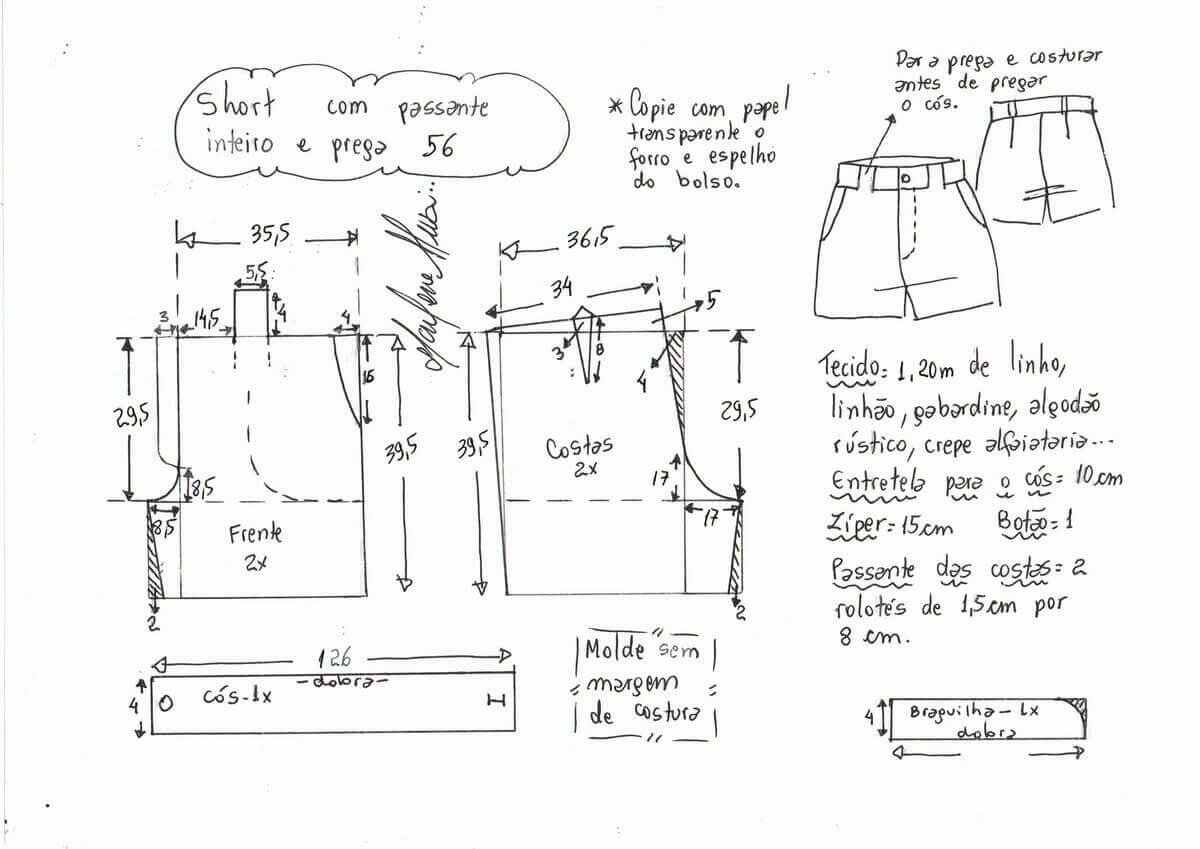 Short com passante
inteiro e prega 56
* Copie com papel
transparente o
forro e espelho
do bolso.
Para prega e costurar
antes de pregar
o cós.
35,5
5,5
3
14,5
4
4
16
29,5
8,5
8,5
39,5
Frente
2x
2
36,5
34
5
3
8
4
39,5
Costas
2x
29,5
17
17
2
Tecido= 1,20m de linho,
linhão, gabardine, algodão
rústico, crepe alfaiataria...
Entretela para o cós= 10cm
Zíper= 15cm Botão= 1
Passante das costas= 2
rolotés de 1,5cm por
8 cm.
126
-dobra-
4
cós-1x
Molde sem
margem
de costura
4
Braguilha - 1x
dobra